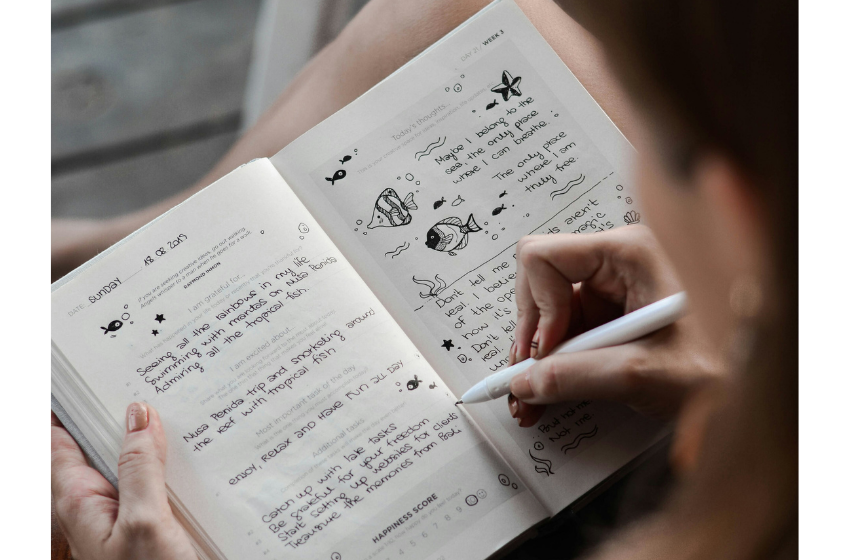 DATE: SUNDAY 18 08 2019
If you are seeking creative ideas, go out walking.
Angels whisper to a man when he goes for a walk.
RAYMOND INMON
I am grateful for...
Seeing all the rainbows in my life
Swimming with mantas on Nusa Penida
Admiring all the tropical fish.
I am excited about...
Nusa Penida trip and snorkeling around
the reef with tropical fish
Most important task of the day
enjoy, RELAX and HAVE FUN ALL DAY
Additional tasks
Catch up with late tasks
Be grateful for your freedom
Start setting up websites for clients
Treasure the memories from Bali
HAPPINESS SCORE
4 5 6 7 8 9
DAY 21 / WEEK 3
Today's thoughts...
Maybe I belong to the
sea the only place
where I can breathe.
The only place
where I am
truly free.
aren't
Don't tell me magic
real. I
of the
how it's
Don't tell
real.
Not me.